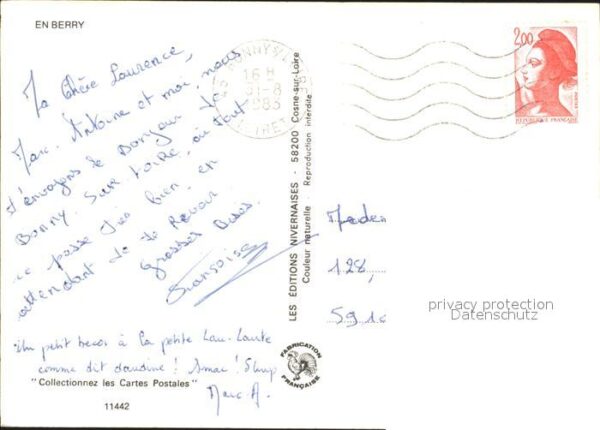 EN BERRY
Ma Chère Laurence,
Marc. Antoine et moi, nous
t'envoyons le Bonjour de
Bonny. Sur Loire, où tout
se passe très bien, en
attendant de te Revoir
Grosses Bises.
Françoise
Un petit becos à la petite Lau-Laute
comme dit Claudine !
Marc A.
"Collectionnez les Cartes Postales"
11442
LES ÉDITIONS NIVERNAISES - 58200 Cosne-sur-Loire
Couleur naturelle Reproduction interdite
FABRICATION
FRANÇAISE
16 H
31-8
1983
2,00
POSTES
REPUBLIQUE FRANÇAISE
128,
privacy protection
Datenschutz